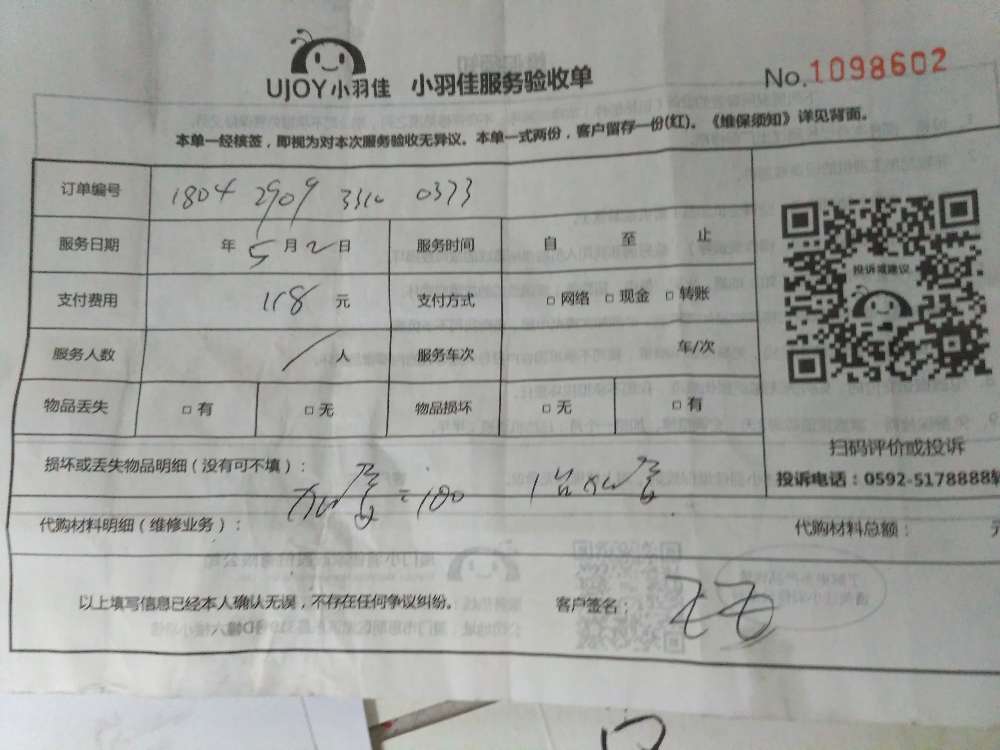 UJOY小羽佳 小羽佳服务验收单 No.1098602
本单一经核签，即视为对本次服务验收无异议。本单一式两份，客户留存一份(红)。《维保须知》详见背面。
订单编号 1804 2909 3310 0373
服务日期 年5月2日 服务时间 自 至 止
支付费用 118元 支付方式 □网络 □现金 □转账
服务人数 人 服务车次 车/次
物品丢失 □有 □无 物品损坏 □无 □有
投诉或建议
扫码评价或投诉
投诉电话：0592-5178888转
损坏或丢失物品明细（没有可不填）：
=100 1台
代购材料明细（维修业务）： 代购材料总额：
以上填写信息已经本人确认无误，不存在任何争议纠纷。 客户签名：